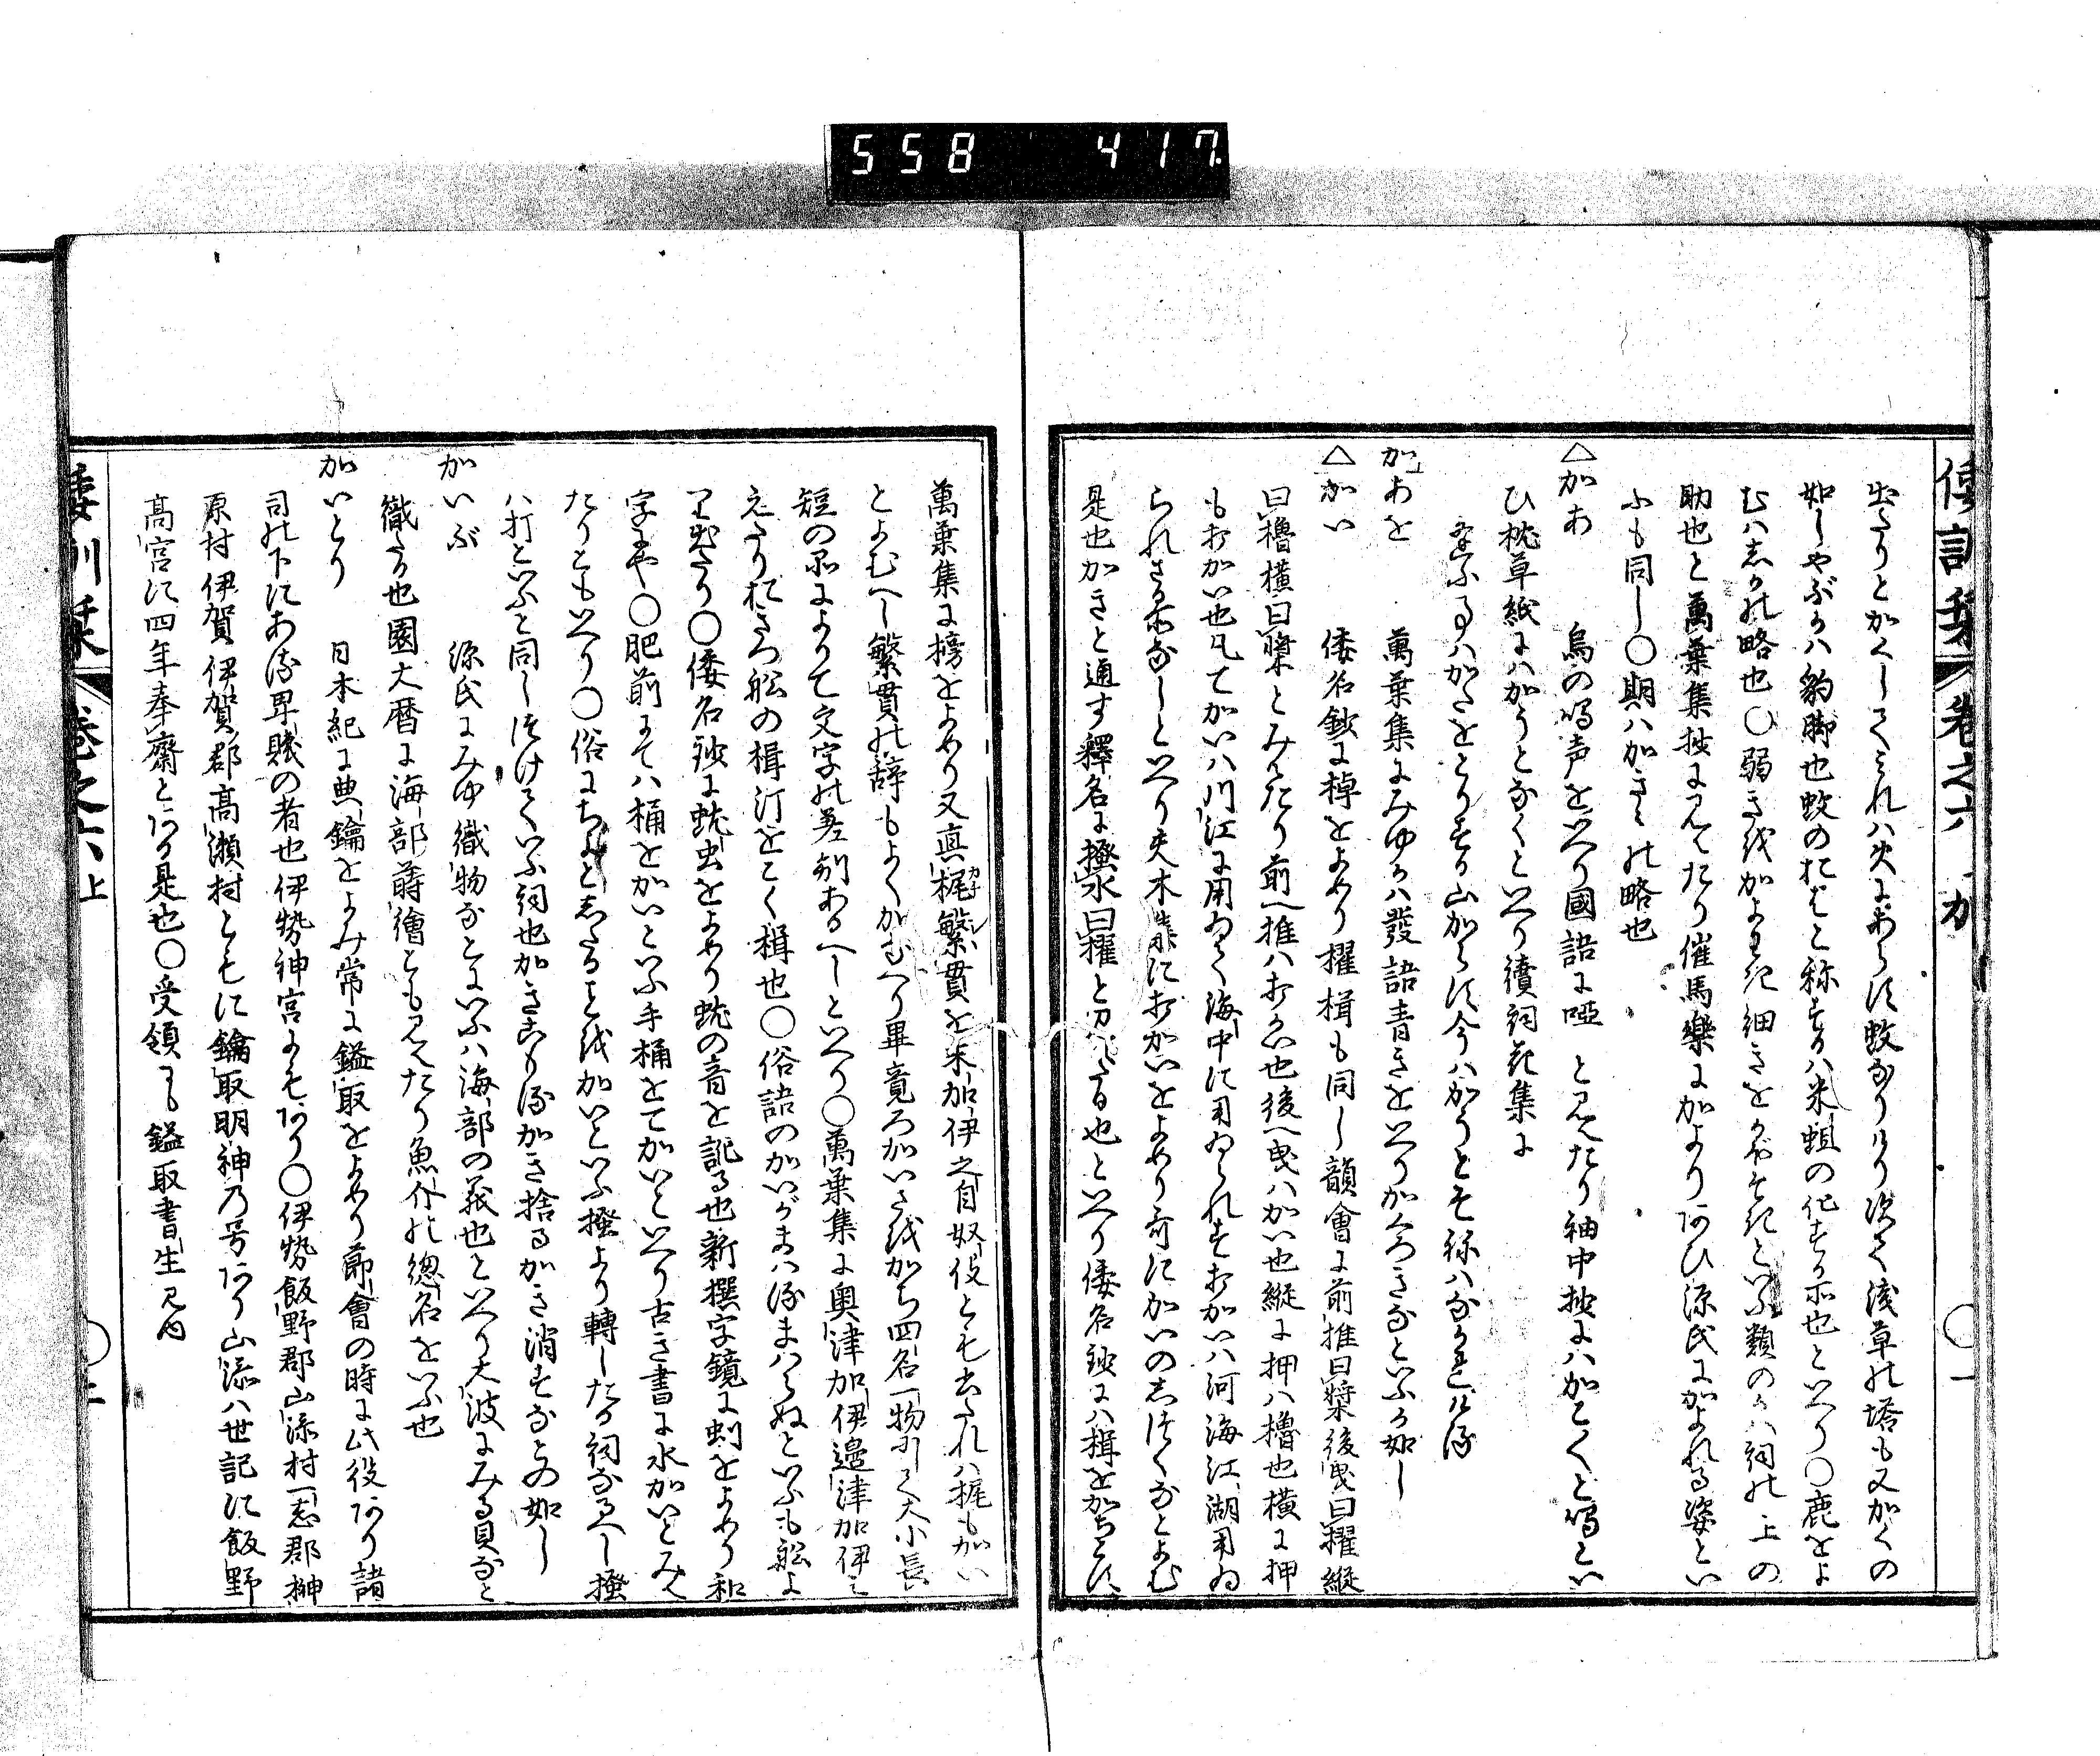 558 417
倭訓栞 卷之六 か
出たりとかくしてこれハ蚊にあらす蚊なりけり次て浅草の塔も又かくの
如しやぶかハ豹脚也蚊のおばと称するハ米蛆の化する所也といへり○鹿をよ
むハしかの略也○弱きをかよわき細きをかぼそきといふ類のかハ詞の上の
助也と萬葉集抄に見えたり催馬樂にかよりあひ源氏にかよれる姿とい
ふも同し○期ハかきりの略也
△かあ 烏の鳴声をいへり國語に啞と見えたり袖中抄にハかこくと鳴とい
ひ枕草紙にハかうとなくといへり續詞花集に
かあを 萬葉集にみゆかハ發語青きをいへりかくろきなといふか如し
△かい 倭名鈔に棹をよめり擢楫も同し韻會に前推曰槳後曳曰擢縦
曰櫓横曰槳とみえたり前へ推ハおかい也後へ曳ハかい也縦に押ハ櫓也横に押
もおかい也凡てかいハ川江に用ゐて海中に用ゐられすおかいハ河海江湖用ゐ
られさる所なしといへり夫木集におかいをよめり哥にかいのしつくなとよむ
是也かきと通す釋名に撥水曰擢と見えたる也といへり倭名鈔にハ楫をかちとす
萬葉集に榜をよめり又真梶繁貫を末加伊之自奴伎ともあれハ梶もかい
とよむへし繁貫の辞もよくかなへり畢竟ろかいさをかち四名一物にして大小長
短の品によりて文字の差別あるへしといへり○萬葉集に奥津加伊邊津加伊と
見えたりおきつ舩の楫汀をこく楫也○俗語のかいがまハるまハらぬといふも舩よ
り出たり○倭名鈔に蚘虫をよめり蚘の音を訛る也新撰字鏡に䖡をよめり和
字にや○肥前にてハ桶をかいといふ手桶をてかいといへり古き書に水かいとみえ
たりともいへり○俗にちよとしたる事をかいといふ掻より轉したる詞なるへし掻
ハ打といふと同しつけていふ詞也かきくもるかき捨るかき消すなとの如し
かいぶ 源氏にみゆ織物なとにいふハ海部の義也といへり大波にみる貝なと
織たる也園大暦に海部蒔繪とも見えたり魚介の總名をいふ也
かいとり 日本紀に典鑰をよみ常に鎰取をよめり節會の時に此役あり諸
司の下にある卑賤の者也伊勢神宮にもあり○伊勢飯野郡山添村一志郡榊
原村伊賀伊賀郡高瀬村ともに鑰取明神乃号あり山添ハ世記に飯野
高宮に四年奉齋とあり是也○受領にも鎰取書生見ゆ
倭訓栞 卷之六上